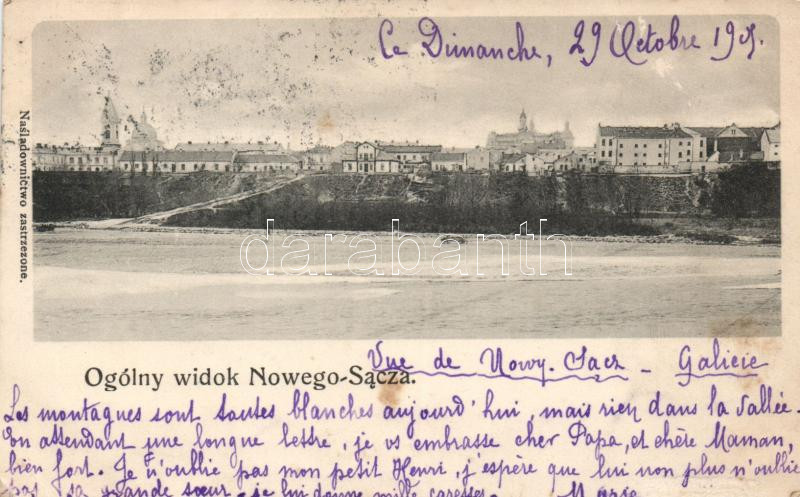 Ce Dimanche, 29 Octobre 1905.
Naśladownictwo zastrzeżone.
darabanth
Vue de Nowy-Sacz - Galicie
Ogólny widok Nowego-Sącza.
Les montagues sont toutes blanches aujourd'hui, mais rien dans la vallée.
En attendant une longue lettre, je vs embrasse cher Papa, et chère Maman,
bien fort. Je n'oublie pas mon petit Henri, j'espère que lui non plus n'oublie
pas sa grande sœur - je lui donne mille caresses - Marie